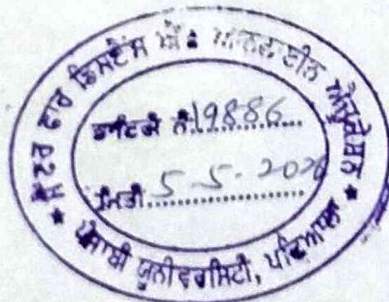 ਸੈਂਟਰ ਫਾਰ ਡਿਸਟੈਂਸ ਐਂਡ ਆਨਲਾਈਨ ਐਜੂਕੇਸ਼ਨ
ਡਾਇਰੀ ਨੰ 19886
ਮਿਤੀ 5-5-2026
ਪੰਜਾਬੀ ਯੂਨੀਵਰਸਿਟੀ, ਪਟਿਆਲਾ